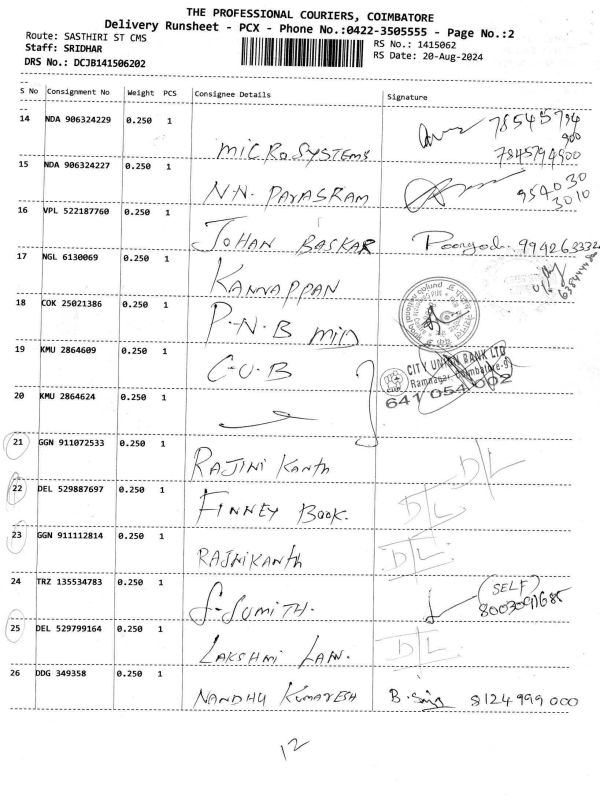 THE PROFESSIONAL COURIERS, COIMBATORE
Delivery Runsheet - PCX - Phone No.:0422-3505555 - Page No.:2
Route: SASTHIRI ST CMS
RS No.: 1415062
Staff: SRIDHAR
RS Date: 20-Aug-2024
DRS No.: DCJB141506202
S No Consignment No Weight PCS Consignee Details Signature
14 NDA 906324229 0.250 1
MICROSYSTEMS 78545794 900
7845794900
15 NDA 906324227 0.250 1
N.N. PAYASRAM 954030 3010
16 VPL 522187760 0.250 1
JOHAN BASKAR
17 NGL 6130069 0.250 1
KANNAPPAN
18 COK 25021386 0.250 1
P-N-B MID
19 KMU 2864609 0.250 1
C-U-B
CITY UNION BANK LTD
Ramnagar, Coimbatore-9
641 054 002
20 KMU 2864624 0.250 1
21 GGN 911072533 0.250 1
RAJINI Kanth D/L
22 DEL 529887697 0.250 1
FINNEY BOOK. D/L
23 GGN 911112814 0.250 1
RAJNIKANTH D/L
24 TRZ 135534783 0.250 1
S-SUMITH. SELF
25 DEL 529799164 0.250 1
LAKSHMI LAW. D/L
26 DDG 349358 0.250 1
NANDHU KUMARESH 8124 999 000
12